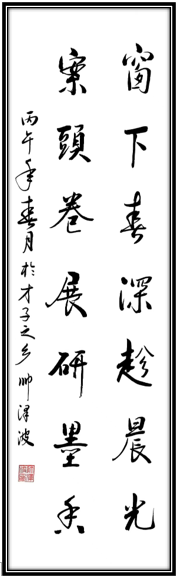 窗下春深趁晨光
案頭卷展研墨香
丙午年春月於才子之乡帅泽波